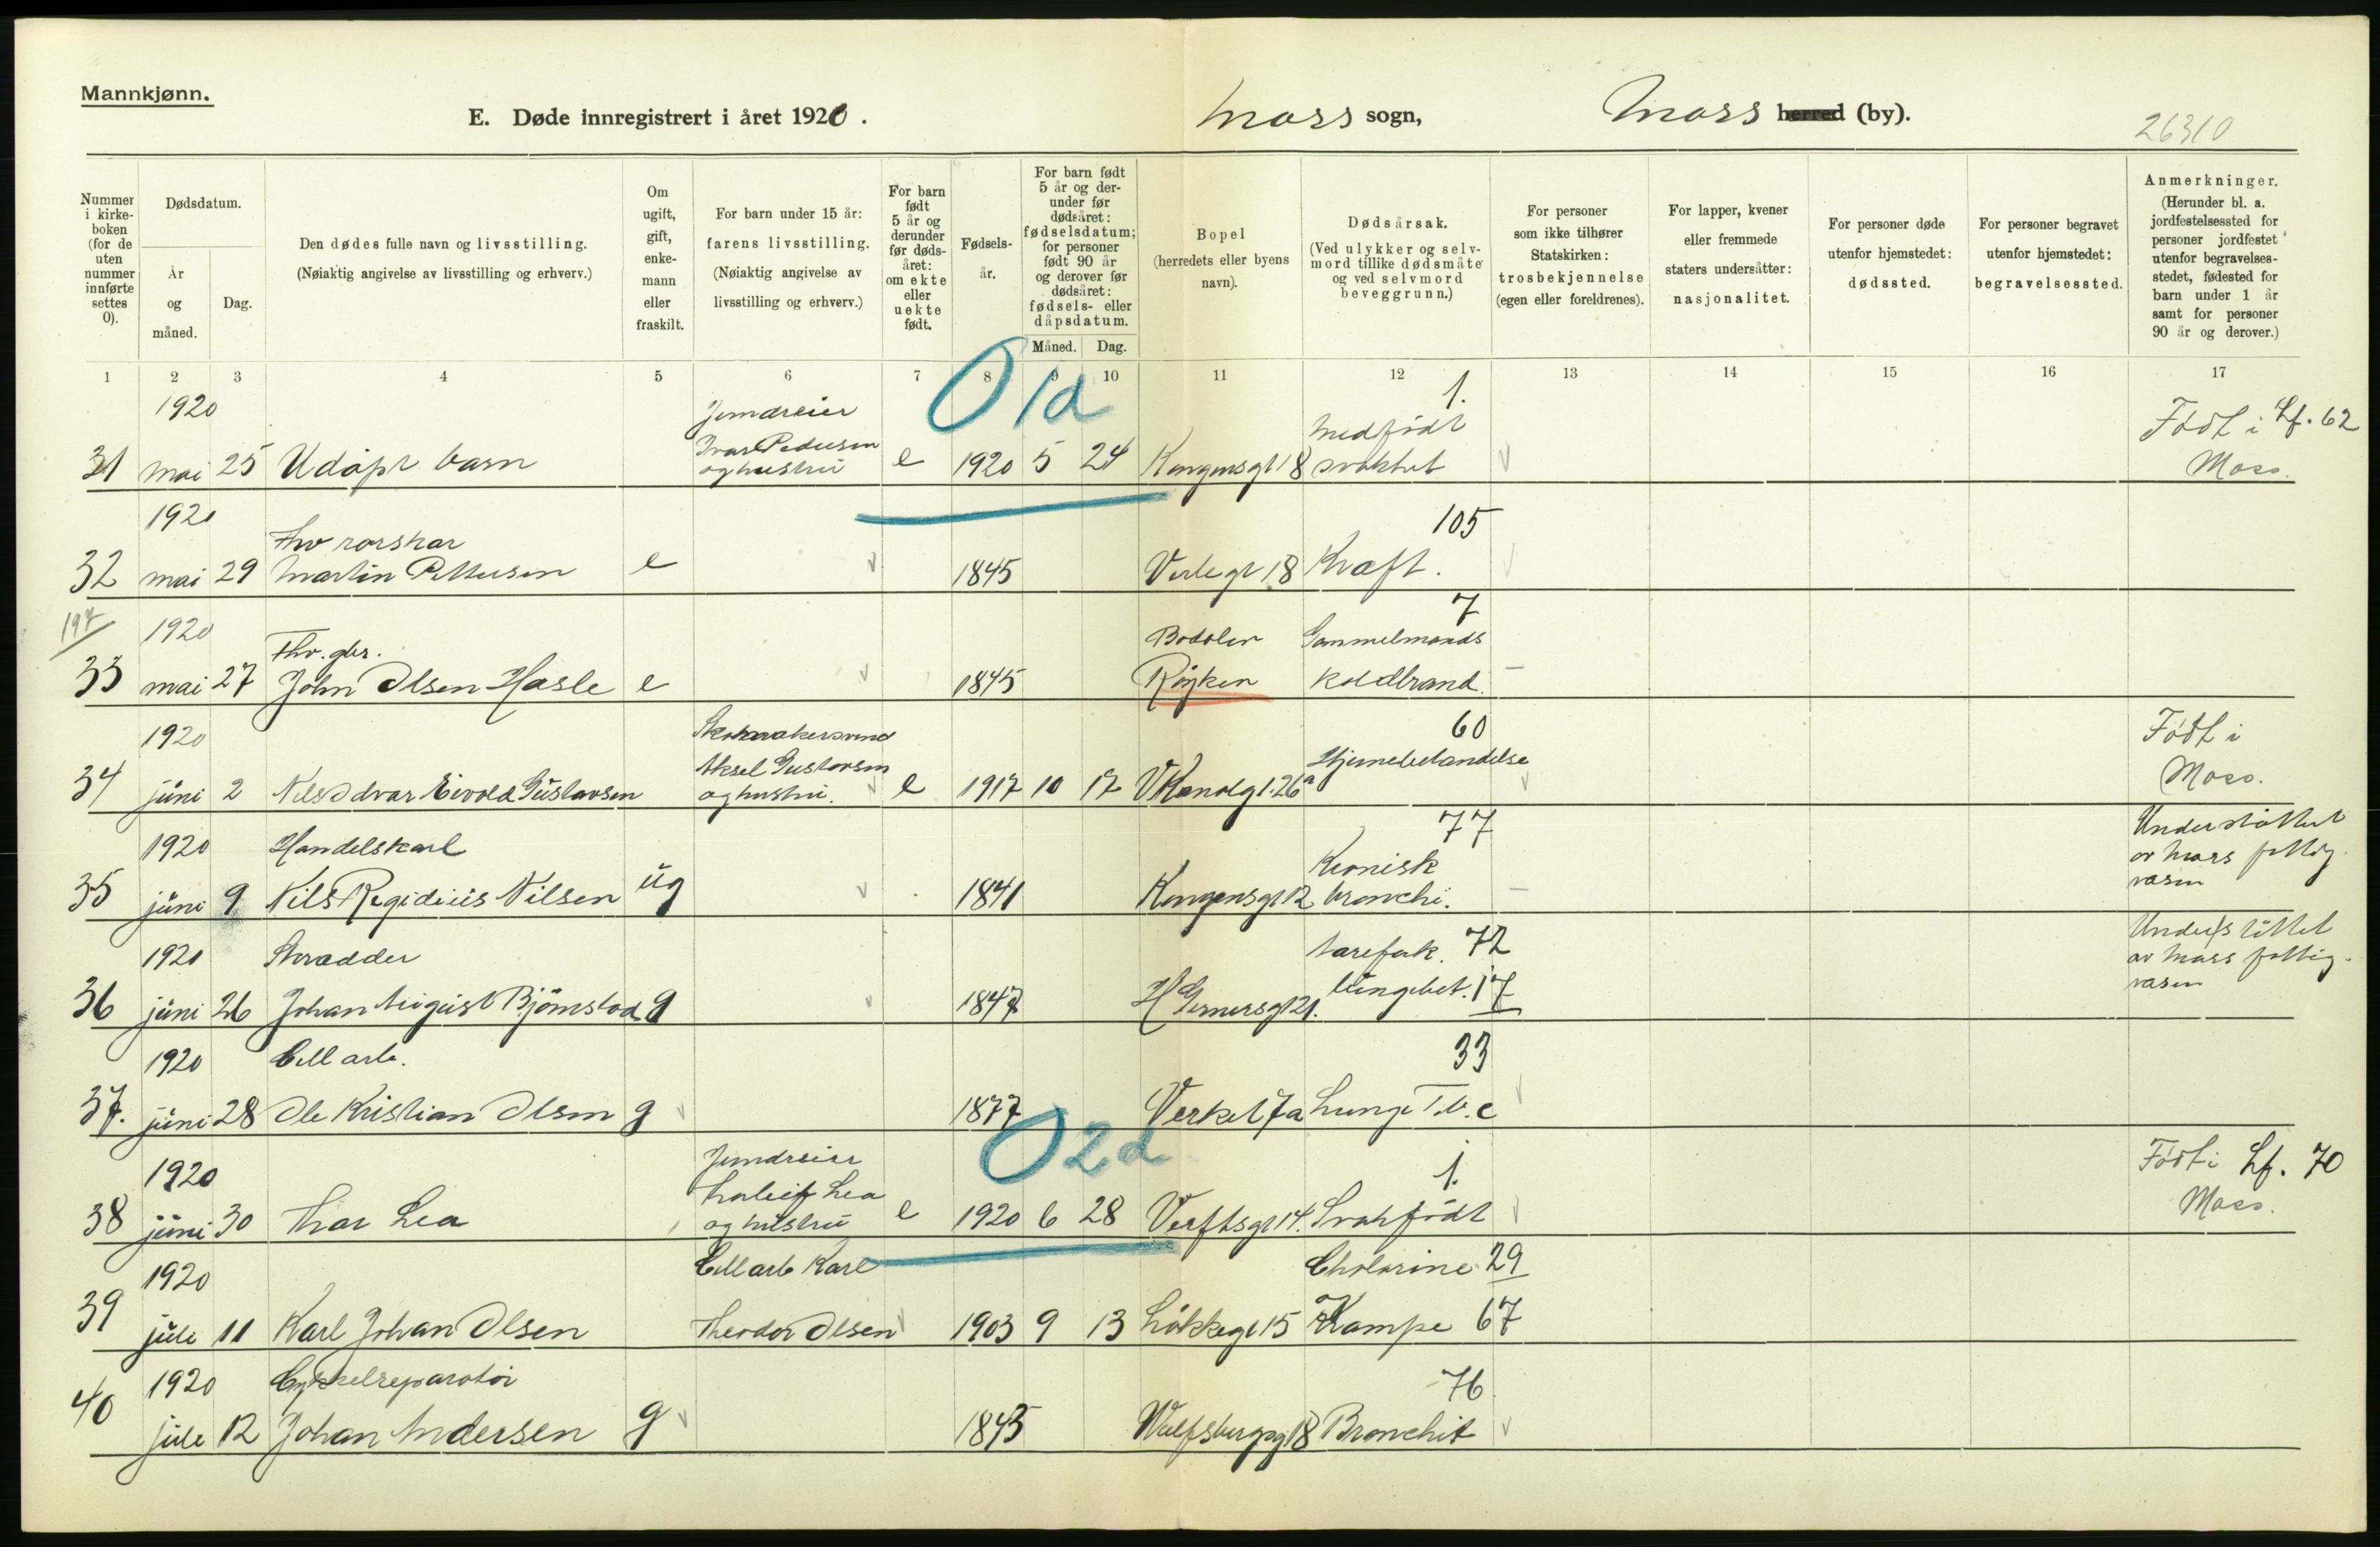 Mannkjønn.
E. Døde innregistrert i året 1920.
Moss sogn,
Moss herred (by).
26310
Nummer i kirke- boken (for de uten nummer innførte settes 0).
Dødsdatum.
År og måned.
Dag.
Den dødes fulle navn og livsstilling.
(Nøiaktig angivelse av livsstilling og erhverv.)
Om ugift, gift, enke- mann eller fraskilt.
For barn under 15 år: farens livsstilling.
(Nøiaktig angivelse av livsstilling og erhverv.)
For barn født 5 år og derunder før døds- året: om ekte eller uekte født.
Fødsels- år.
For barn født 5 år og der- under før dødsåret: fødselsdatum; for personer født 90 år og derover før dødsåret: fødsels- eller dåpsdatum.
Måned.
Dag.
Bopel (herredets eller byens navn).
Dødsårsak.
(Ved ulykker og selv- mord tillike dødsmåte og ved selvmord beveggrunn.)
For personer som ikke tilhører Statskirken: trosbekjennelse (egen eller foreldrenes).
For lapper, kvener eller fremmede staters undersåtter: nasjonalitet.
For personer døde utenfor hjemstedet: dødssted.
For personer begravet utenfor hjemstedet: begravelsessted.
Anmerkninger.
(Herunder bl. a. jordfestelsessted for personer jordfestet utenfor begravelses- stedet, fødested for barn under 1 år samt for personer 90 år og derover.)
1 2 3 4 5 6 7 8 9 10 11 12 13 14 15 16 17
1920 01d 1.
31 mai 25 Udöpt barn
Ivar Pedersen og hustru e 1920 5 24 Kongensgt 18 Medfödt svakhet
Födt i Lf. 62 Moss.
1920 105
32 mai 29 Martin Pettersen e 1845 Verlegt 18 Kræft.
197
1920 7
Fhv. gbr.
33 mai 27 John Olsen Hasle e 1845 Röyken Gammelmands koldbrand.
1920 60
34 juni 2 Nils Edvar Eivold Gustavsen
Skomakersvend Aksel Gustavsen og hustru. e 1917 10 17 26a
Födt i Moss.
1920 Handelskarl 77
35 juni 9 Nils Regidius Nilsen ug 1841 Kongensgt 12 Kronisk bronchi.
Understöttet av Moss fattigvæsen
1920 Skrædder 72
36 juni 26 Johan August Björnstad g 1847 H Gernersgt 21. lungebet. 17
Understöttet av Moss fattigvæsen
1920 Cell arb. 33
37. juni 28 Ole Kristian Olsen g 1877 Verket 7a Lunge T.b.c
1920 02d 1.
38 juni 30 Thor Lea
Lea og hustru e 1920 6 28 Verftsgt 14. Svakfödt
Födt i Lf. 70 Moss.
1920 Cellarb Karl Cholorine 29
39 juli 11 Karl Johan Olsen Theodor Olsen 1903 9 13 Lökkegt 15 Krampe 67
1920 Cykkelreparatör 76
40 juli 12 Johan Andersen g 1843 Wulfsbergsgt 18 Bronchit